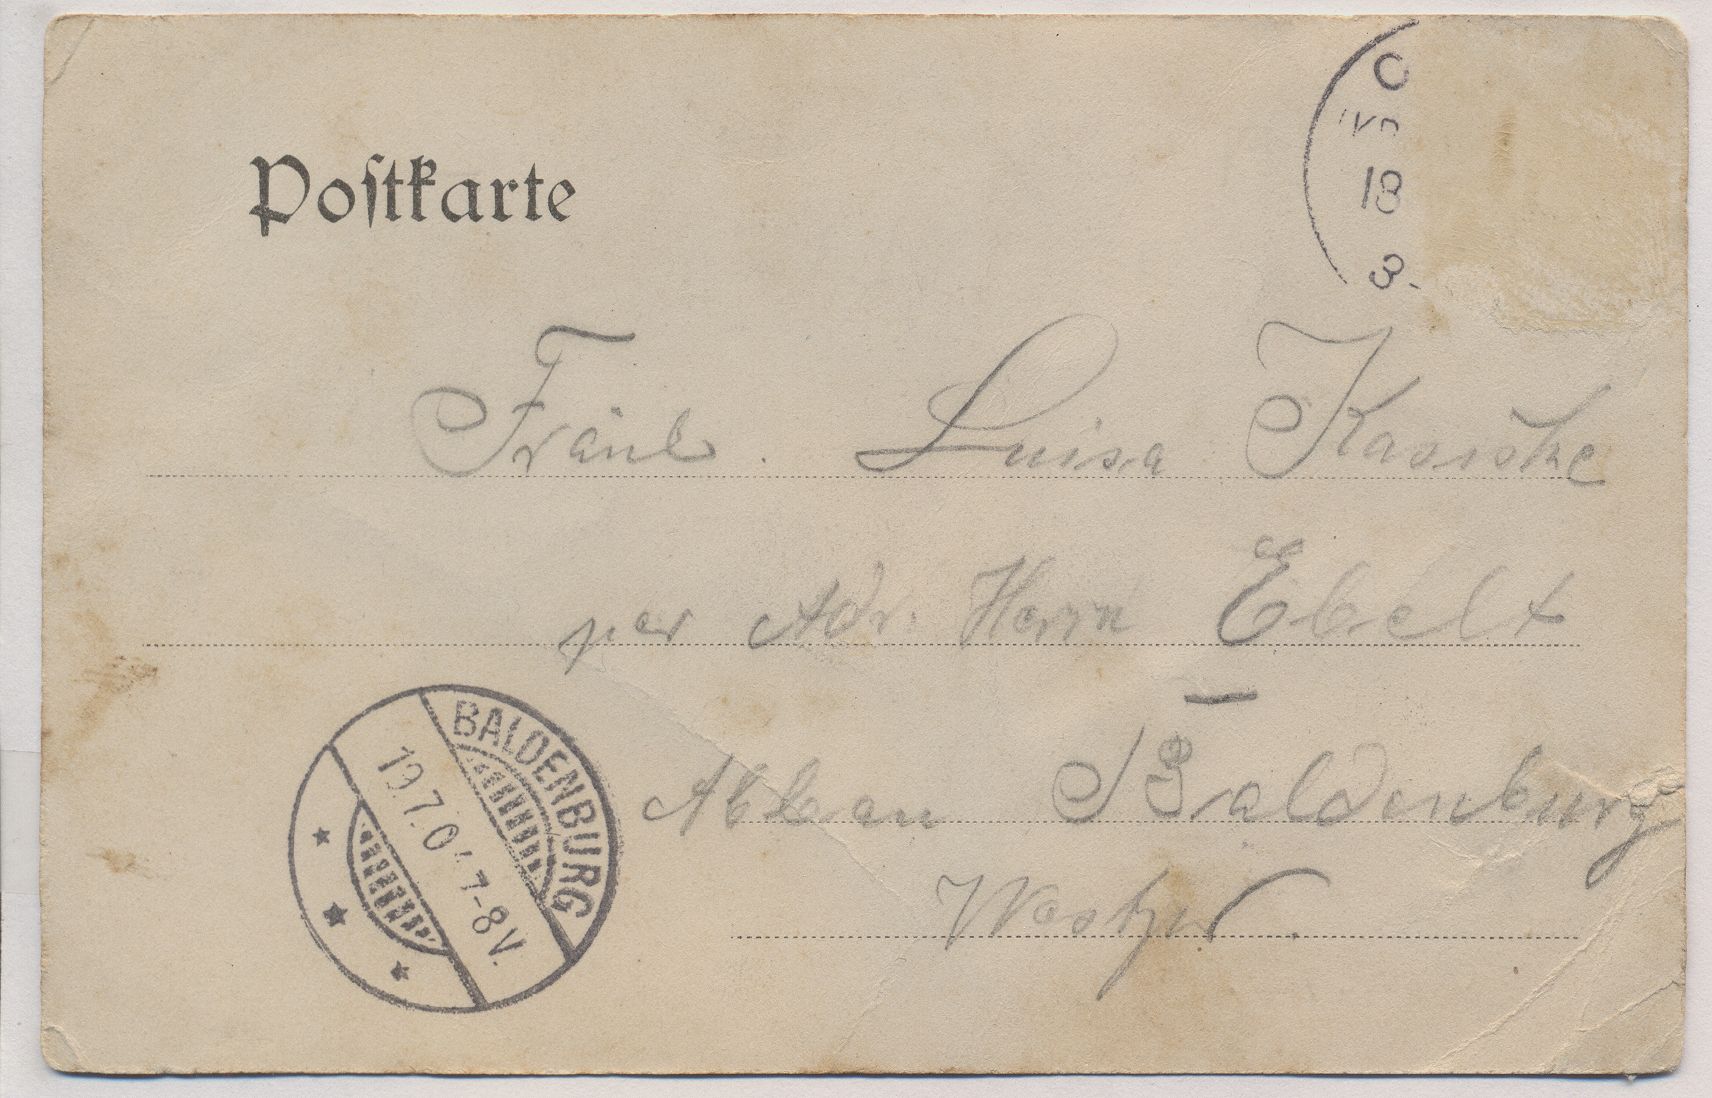 Poſtkarte
18
3
Fräul. Luisa
per Adr. Herrn Ebelt
Abbau Baldenburg
Westpr.
BALDENBURG
19.7.04 7-8V.